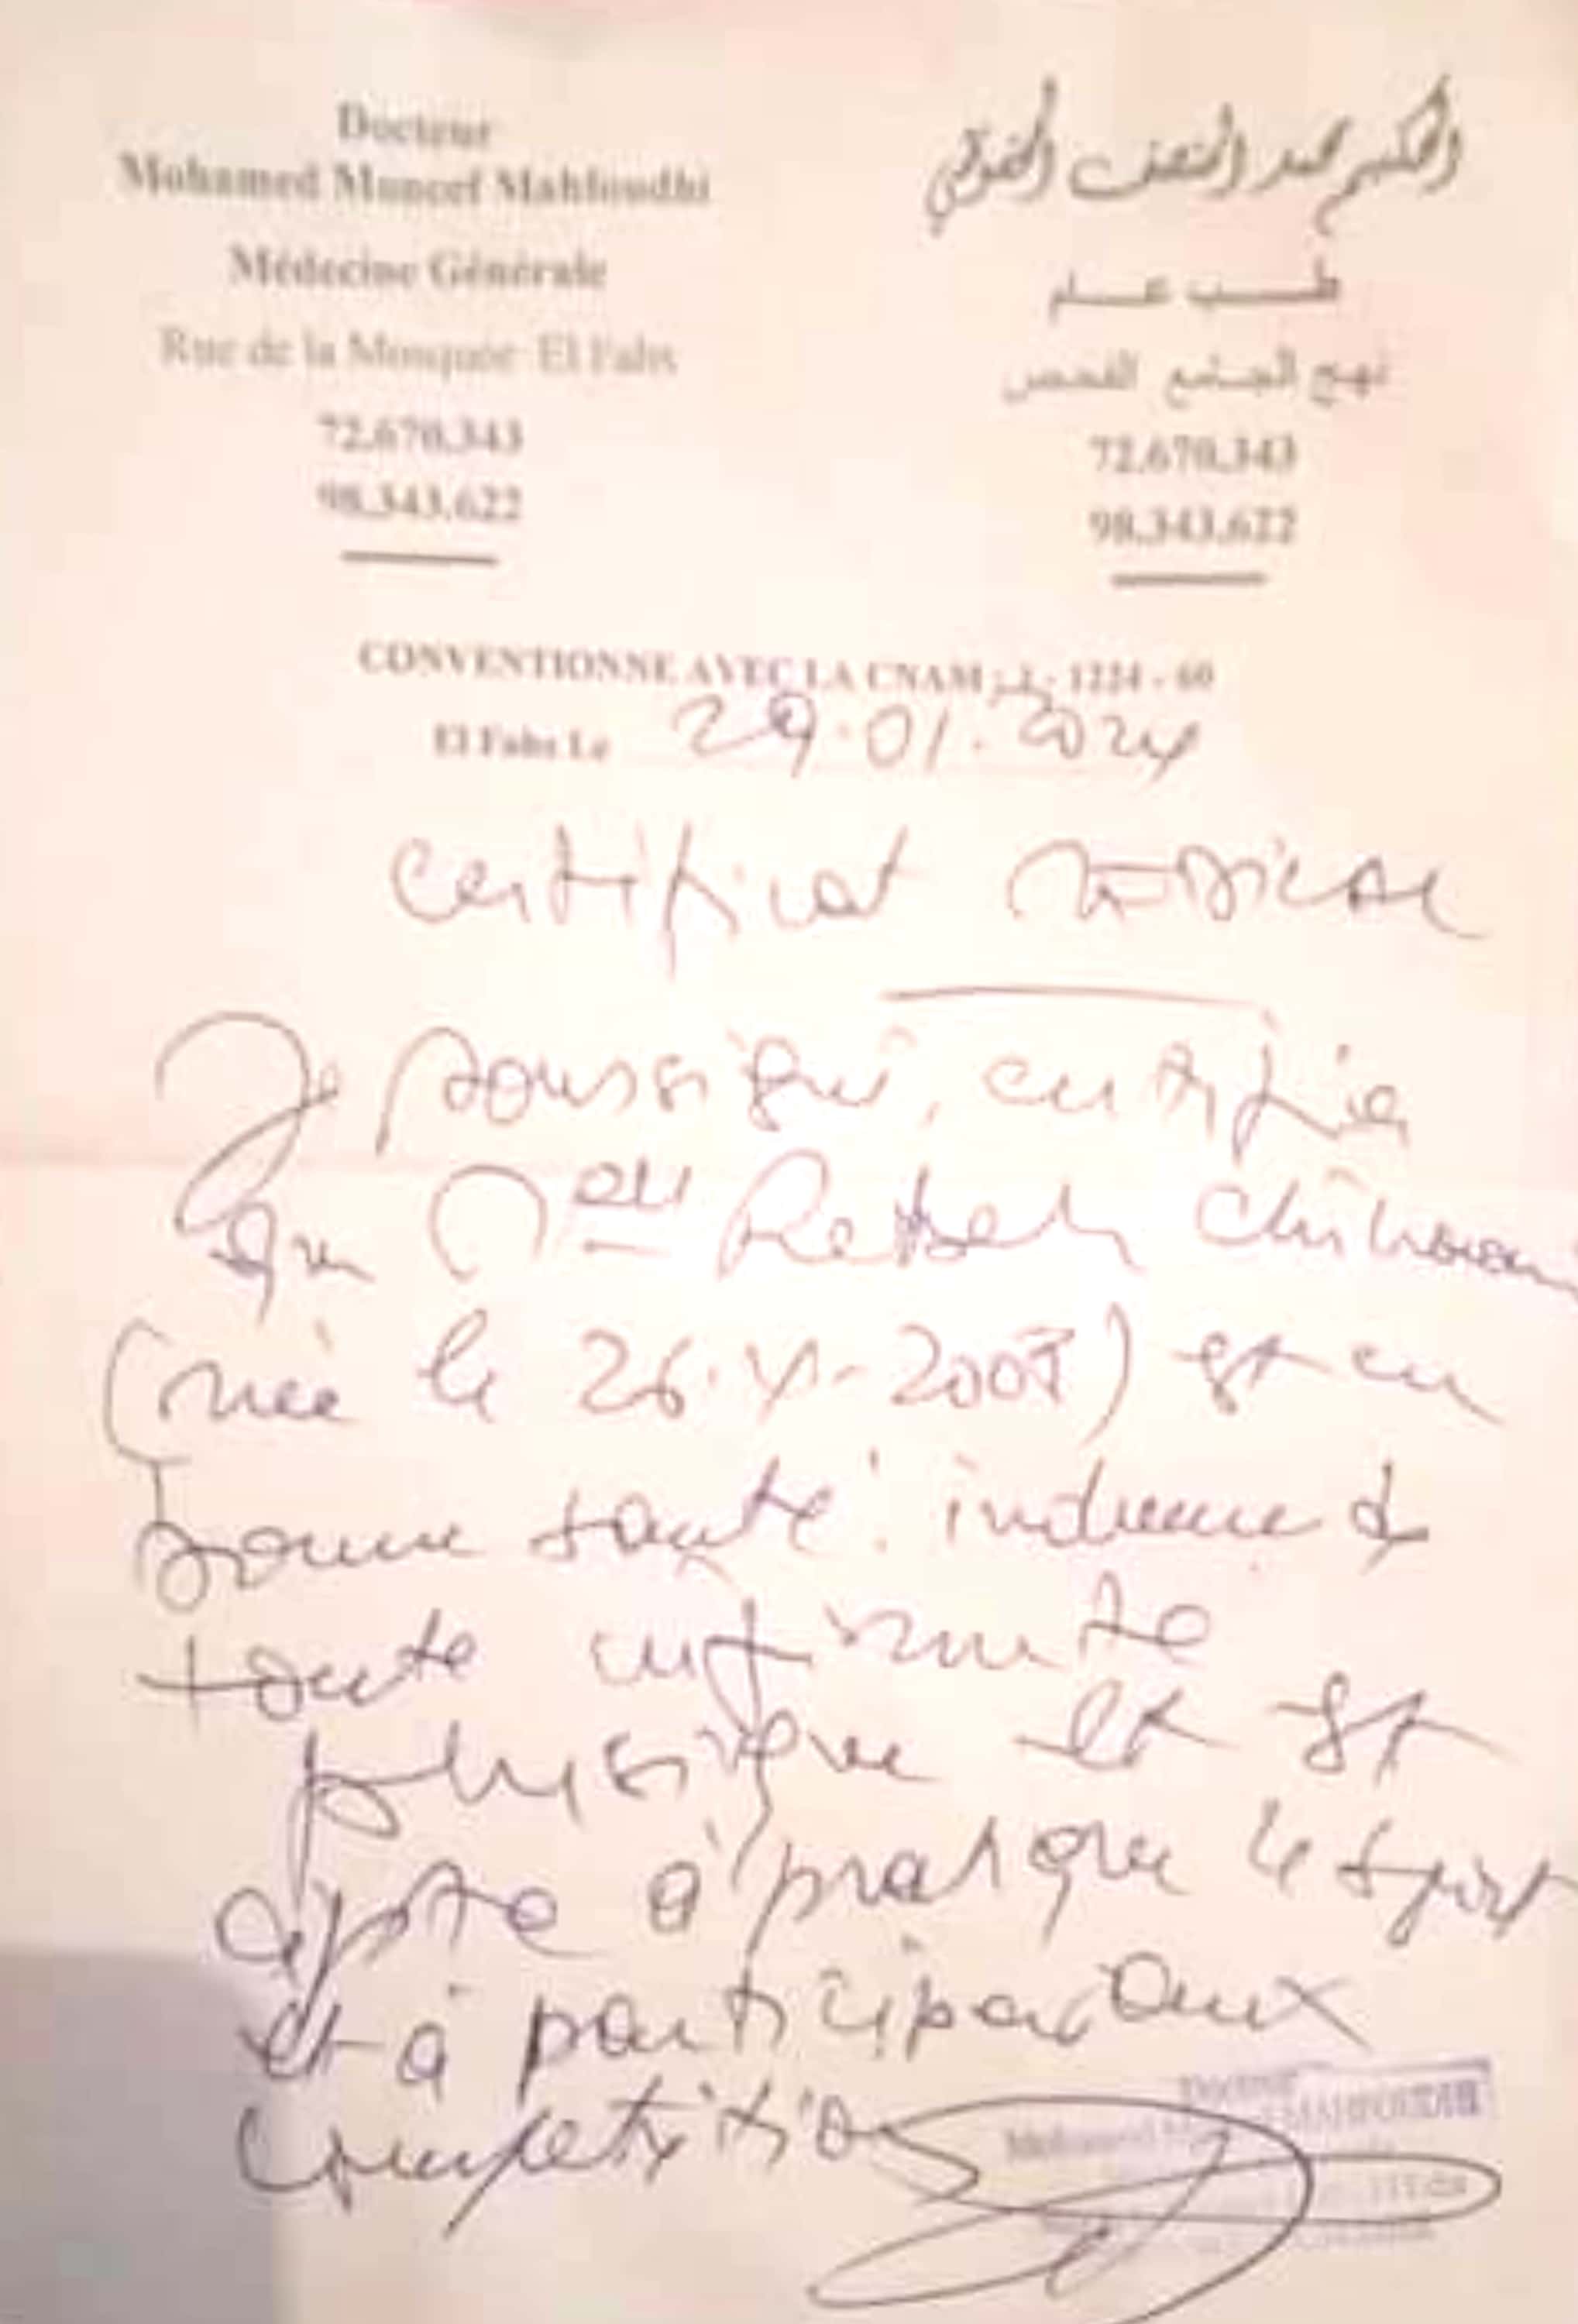 Docteur
Mohamed Moncef Mahfoudhi
Médecine Générale
Rue de la Mosquée El Fahs
72.670.343
98.343.622
الحكيم محمد المنصف المحفوظي
طب عام
نهج الجامع الفحص
72.670.343
98.343.622
CONVENTIONNE AVEC LA CNAM : 1 - 1224 - 60
El Fahs Le 29.01.2024
Certificat MEDICAL
Je soussigné, certifie
que Melle
(née le 26. 2007) est en
bonne santé indemne de
toute infirmité
physique et est
apte à pratiquer le sport
et à participer aux
compétitions
Docteur
Mohamed MAHFOUDHI